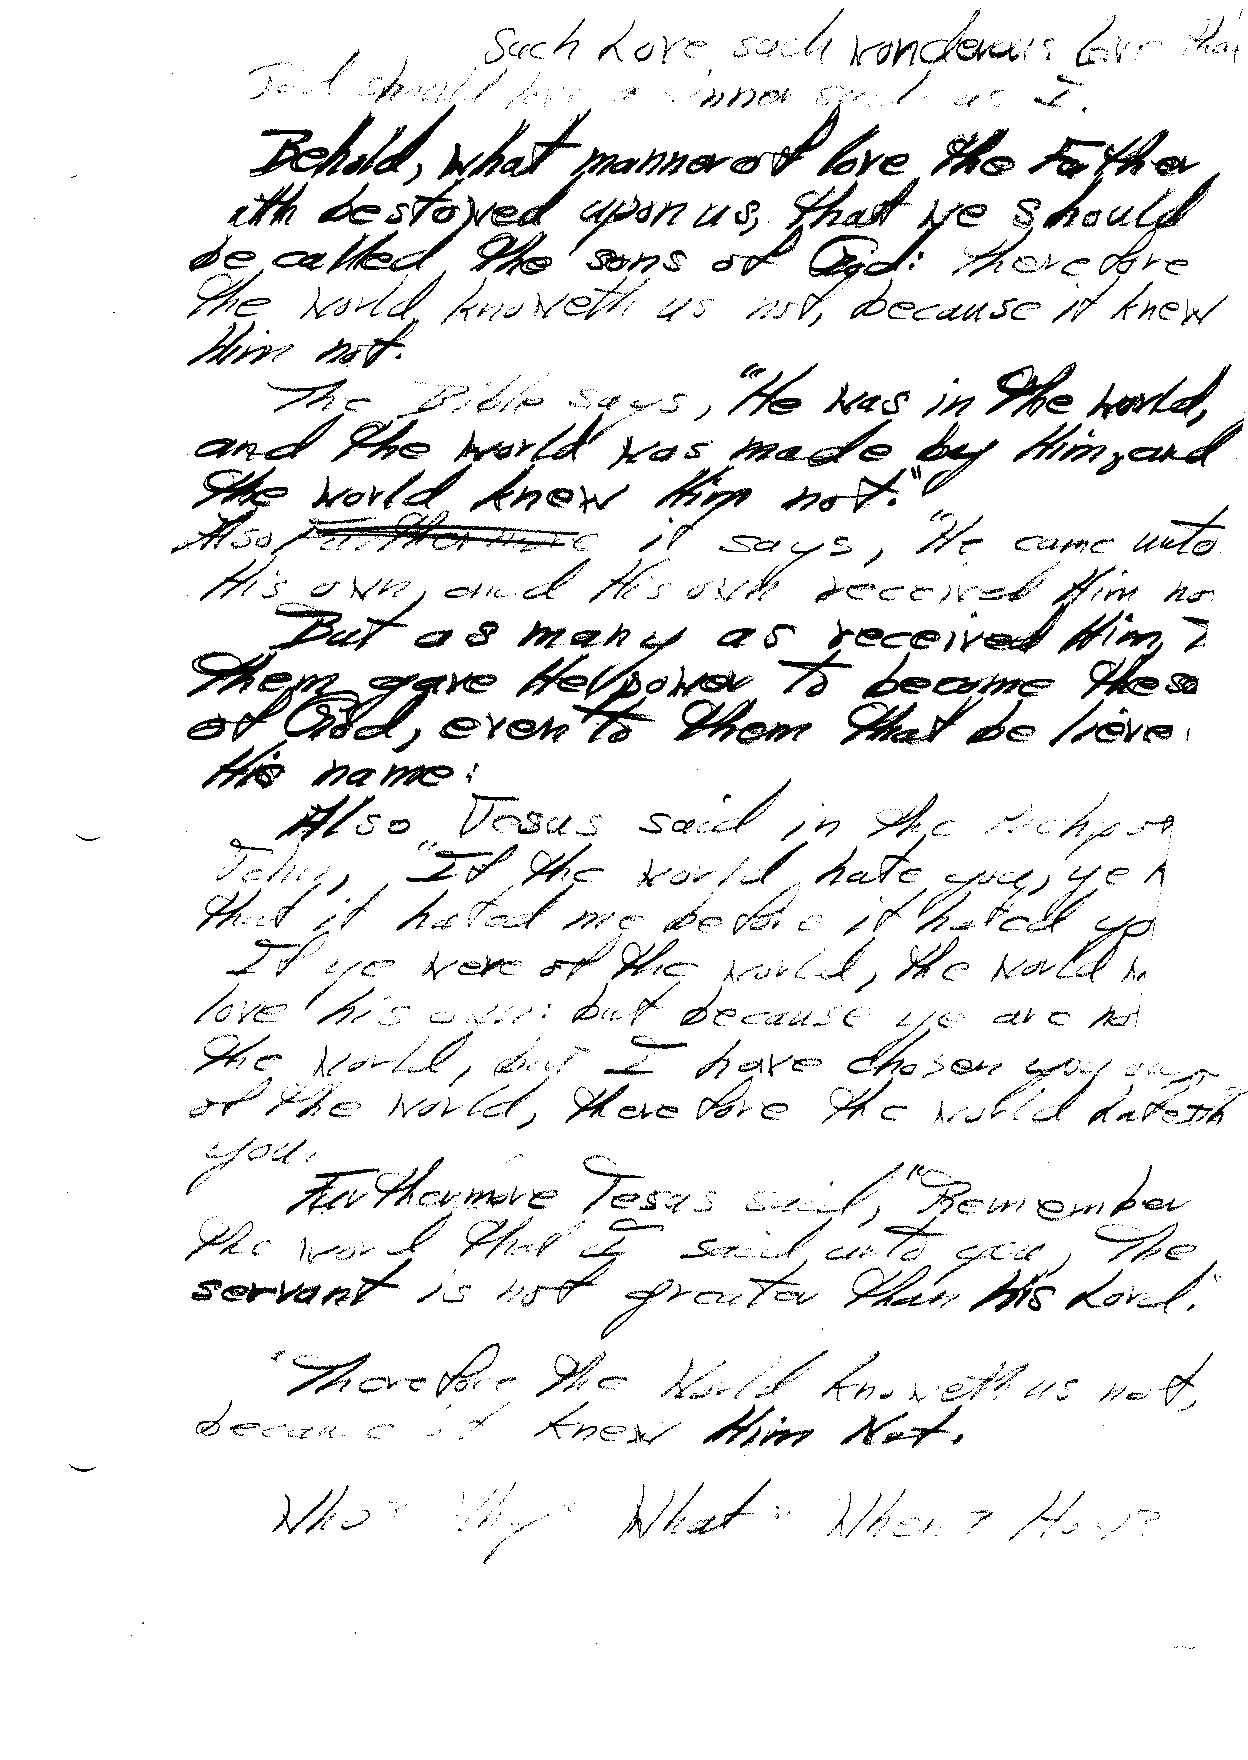 Such Love, such wonderous love that
God should love a sinner such as I.
Behold, what manner of love the Father
ath bestowed upon us, that we should
be called the sons of God: therefore
the world knoweth us not, because it knew
Him not.
The Bible says, "He was in the world,
and the world was made by Him, and
the world knew Him not."
Also Furthermore it says, "He came unto
His own, and His own received Him no
But as many as received Him,
them gave He power to become the so
of God, even to them that believe
His name:
Also Jesus said in the
John, "If the world hate you, ye
that it hated me before it hated yo
If ye were of the world, the world w
love his own: but because ye are not
the world, but I have chosen you out
of the world, therefore the world hateth
you.
Furthermore Jesus said, "Remember
the word that I said unto you, The
servant is not greater than his Lord."
"Therefore the World knoweth us not,
because it knew Him Not.
Who? Why? What? When? How?